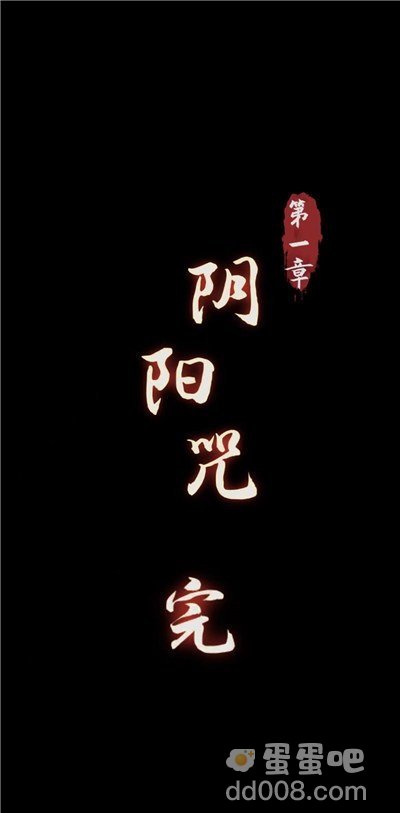 第一章
阴阳咒
完
蛋蛋吧
dd008.com